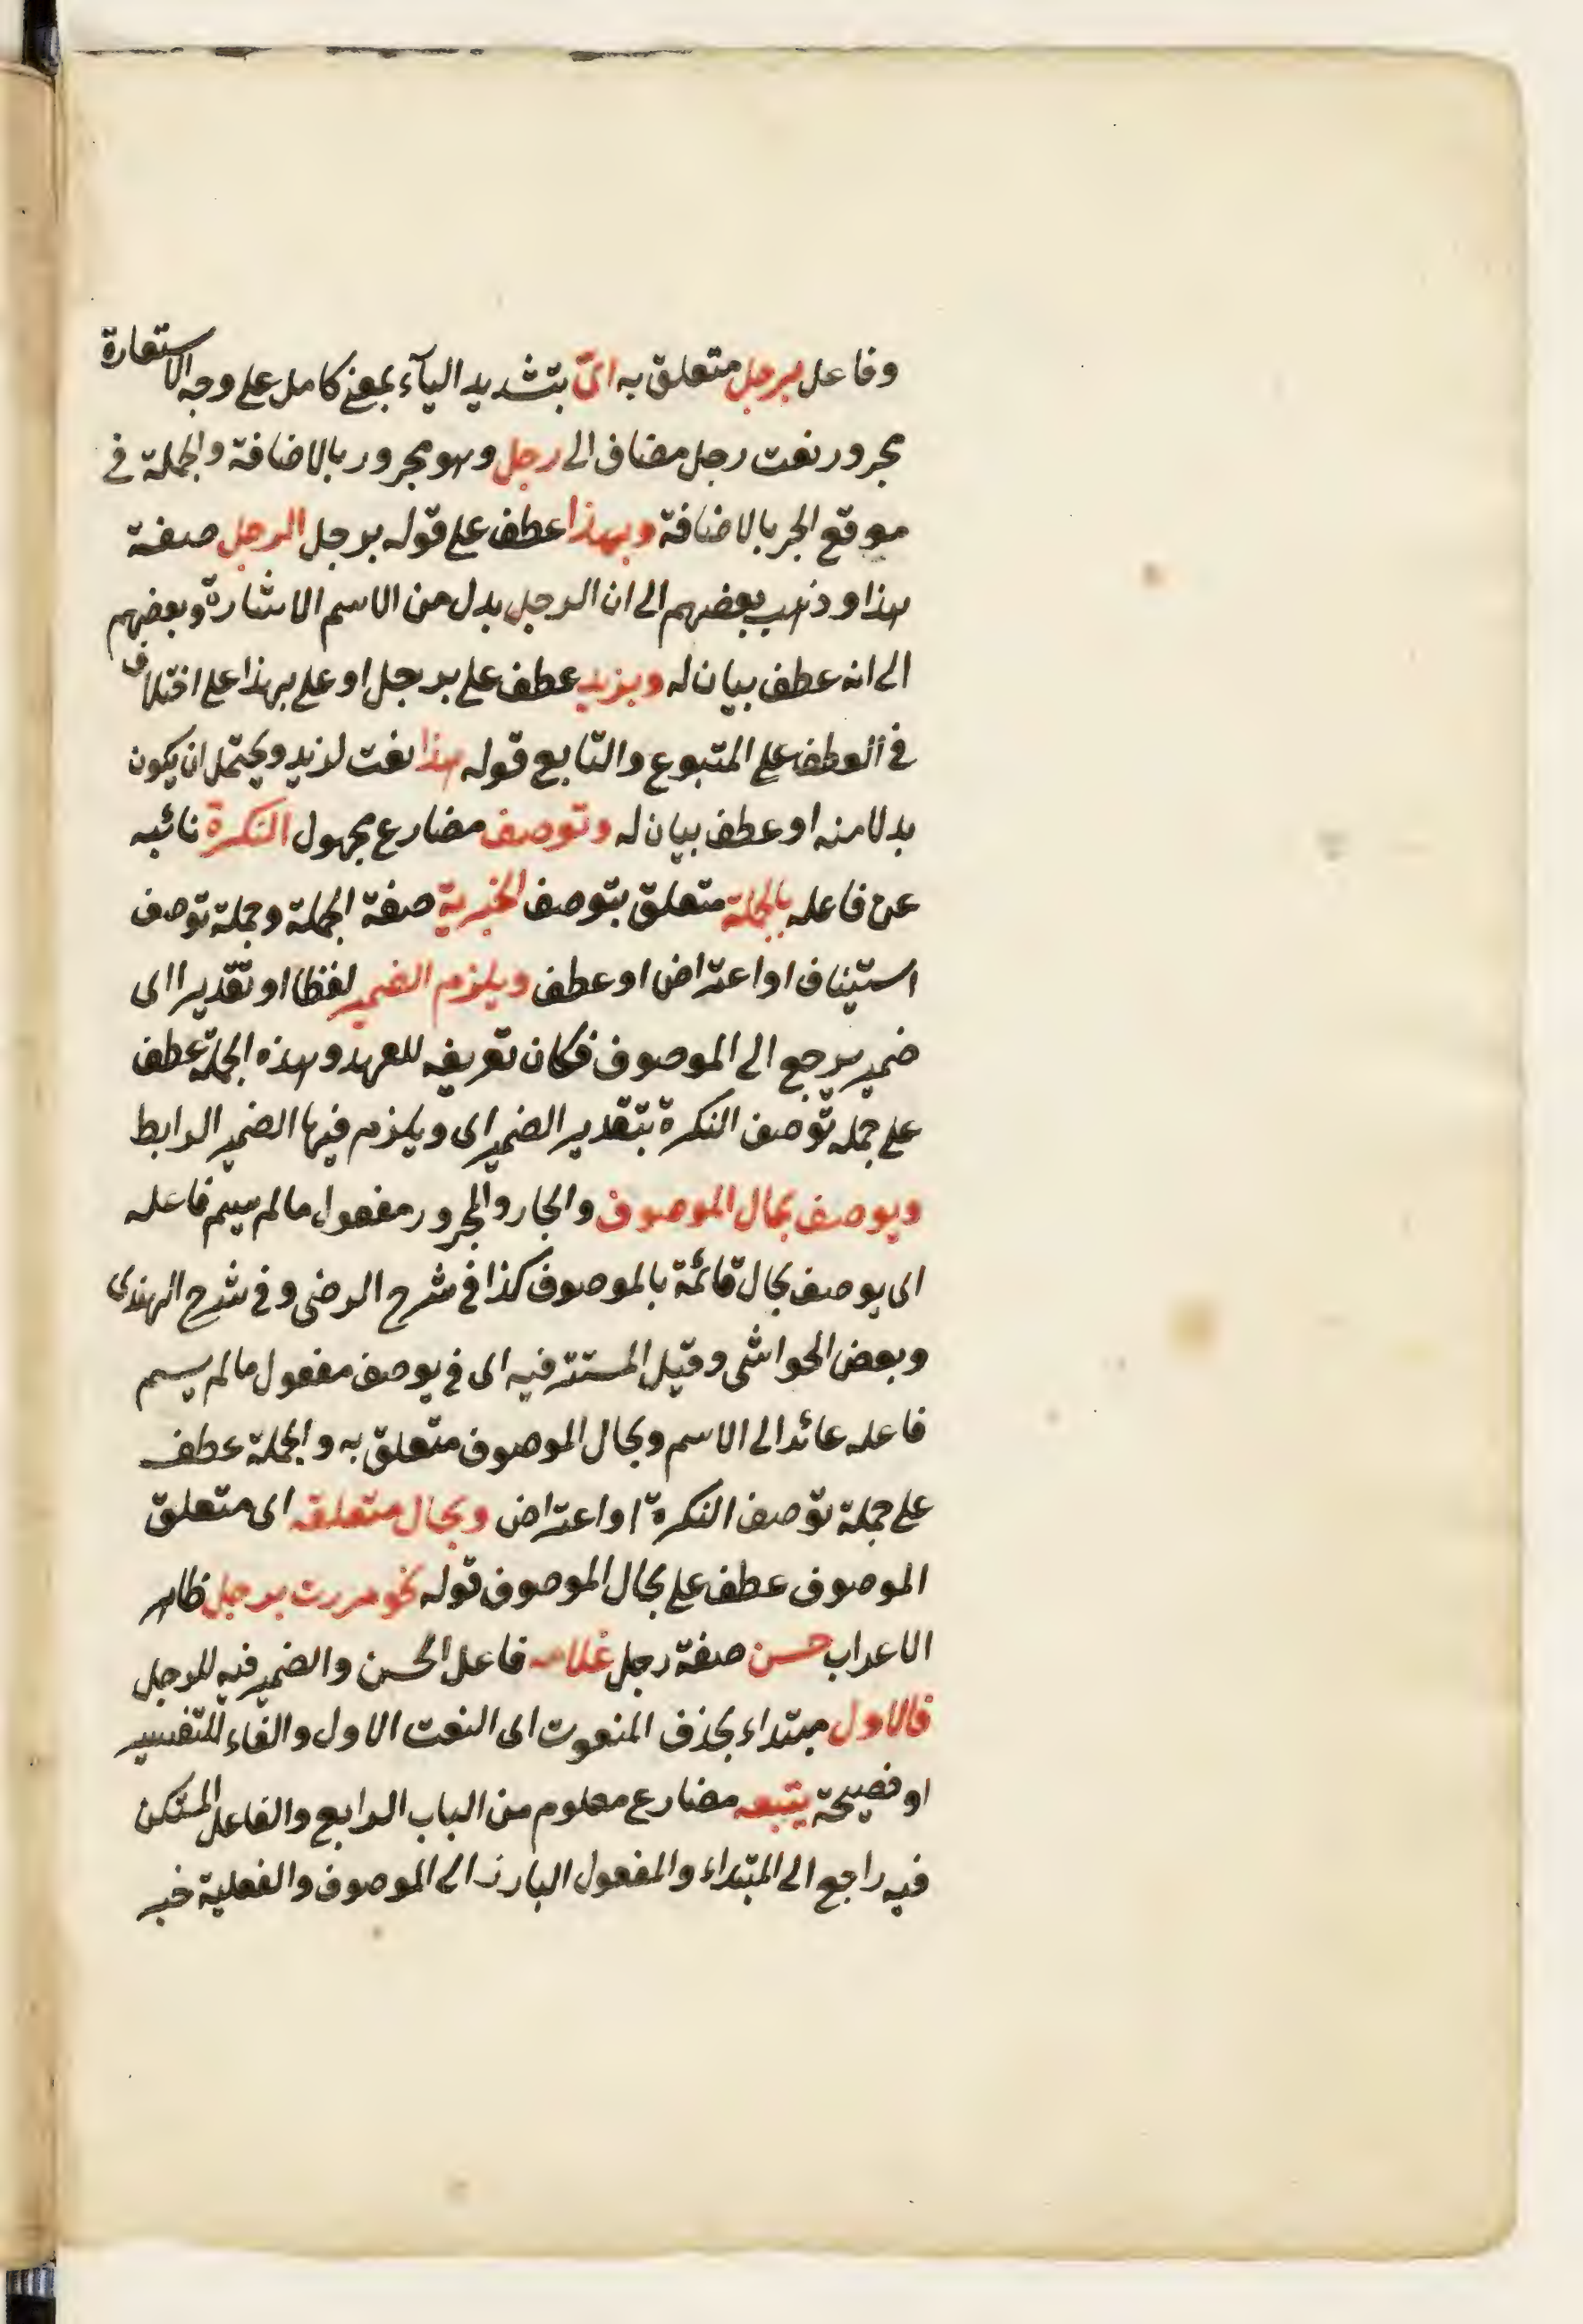 وفاعل برجل متعلق به اىّ بتشديد اليآء بمعنى كامل على وجه الاستعارة
مجرور نعت رجل مضاف الى رجل وهو مجرور بالاضافة والجملة فى
موقع الجر بالاضافة وبهذا عطف على قوله برجل الرجل صفة
هذا وذهب بعضهم الى ان الرجل بدل من الاسم الاشارة وبعضهم
الى انه عطف بيان له وبزيد عطف على برجل او على بهذا على اختلاف
فى العطف على المتبوع والتابع قوله هذا نعت لزيد ويحتمل ان يكون
بدلا منه او عطف بيان له وتوصف مضارع مجهول النكرة نائبه
عن فاعله بالجملة متعلق بتوصف الخبرية صفة الجملة وجملة توصف
استيناف او اعتراض او عطف ويلزم الضمير لفظا او تقديرا اى
ضمير يرجع الى الموصوف فكان تعريفه للعهد وهذه الجملة عطف
على جمله توصف النكرة بتقدير الضمير اى ويلزم فيها الضمير الرابط
ويوصف بحال الموصوف والجار والمجرور مفعول ما لم يسم فاعله
اى يوصف بحال قائمة بالموصوف كذا فى شرح الرضى وفى شرح الهندى
وبعض الحواشى وقيل المستتر فيه اى فى يوصف مفعول ما لم يسم
فاعله عائد الى الاسم وبحال الموصوف متعلق به والجملة عطف
على جملة توصف النكرة او اعتراض وبحال متعلقه اى متعلق
الموصوف عطف على بحال الموصوف قوله نحو مررت برجل ظاهر
الاعراب حسن صفة رجل غلامه فاعل الحسن والضمير فيه للرجل
فالاول مبتداء بحذف المنعوت اى النعت الاول والفاء للتفسير
او فصيحة يتبعه مضارع معلوم من الباب الرابع والفاعل المستكن
فيه راجع الى المبتداء والمفعول البارز الى الموصوف والفعلية خبر